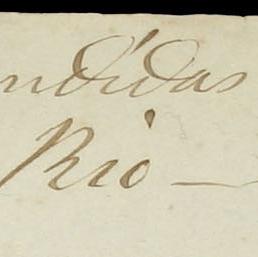 ndidas
Rio —